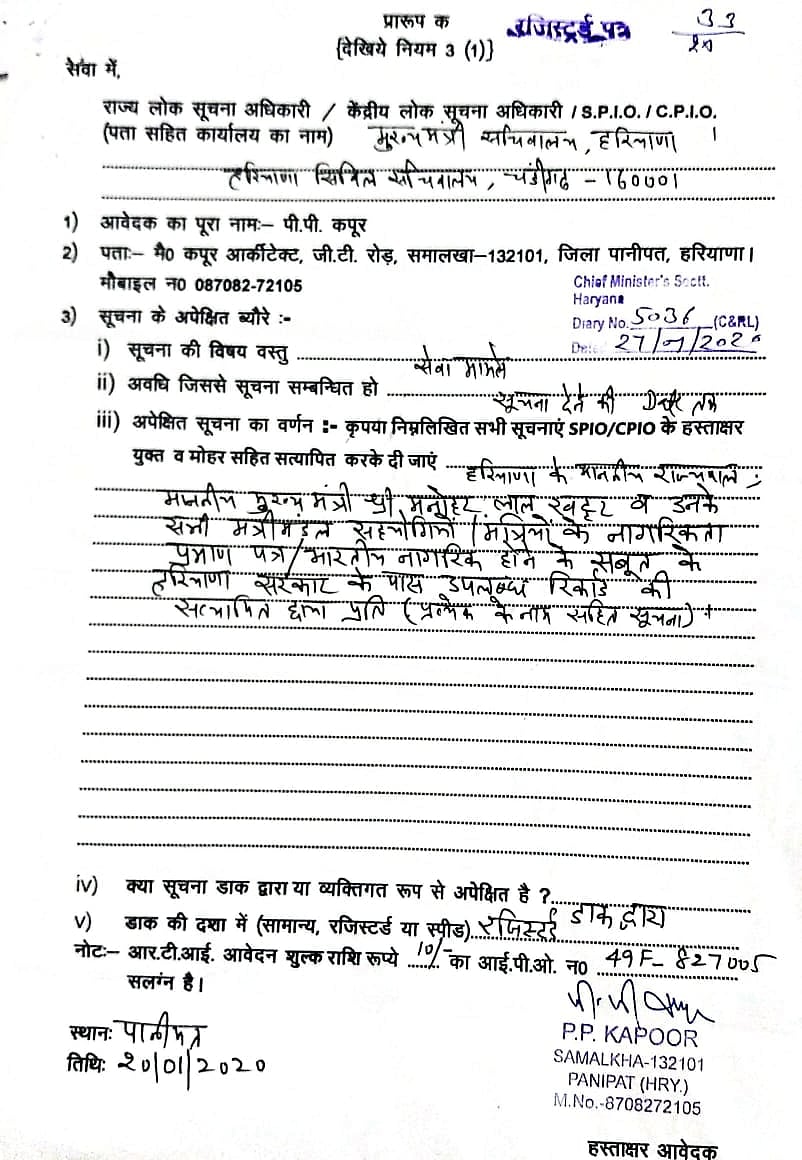 प्रारूप क
रजिस्टर्ड पत्र
33
{देखिये नियम 3 (1)}
सेवा में,
राज्य लोक सूचना अधिकारी / केंद्रीय लोक सूचना अधिकारी / S.P.I.O. / C.P.I.O.
(पता सहित कार्यालय का नाम) मुख्यमंत्री सचिवालय, हरियाणा
हरियाणा सिविल सचिवालय, चंडीगढ़ - 160001
1) आवेदक का पूरा नामः– पी.पी. कपूर
2) पताः– मै0 कपूर आर्कीटेक्ट, जी.टी. रोड़, समालखा–132101, जिला पानीपत, हरियाणा।
मौबाइल न0 087082-72105
Chief Minister's Sectt.
Haryana
Diary No. 5036 (C&RL)
Date 27/01/2020
3) सूचना के अपेक्षित ब्यौरे :-
i) सूचना की विषय वस्तु सेवा मामले
ii) अवधि जिससे सूचना सम्बन्धित हो सूचना देने की Date तक
iii) अपेक्षित सूचना का वर्णन :- कृपया निम्नलिखित सभी सूचनाएं SPIO/CPIO के हस्ताक्षर
युक्त व मोहर सहित सत्यापित करके दी जाएं हरियाणा के माननीय राज्यपाल,
माननीय मुख्य मंत्री श्री मनोहर लाल खट्टर व उनके
सभी मंत्रीमंडल सहयोगियों/मंत्रियों के नागरिकता
प्रमाण पत्र/भारतीय नागरिक होने के सबूत के
हरियाणा सरकार के पास उपलब्ध रिकार्ड की
सत्यापित छाया प्रति (प्रत्येक के नाम सहित सूचना)
iv) क्या सूचना डाक द्वारा या व्यक्तिगत रूप से अपेक्षित है ? डाक द्वारा
v) डाक की दशा में (सामान्य, रजिस्टर्ड या स्पीड) रजिस्टर्ड
नोटः– आर.टी.आई. आवेदन शुल्क राशि रूप्ये 10/- का आई.पी.ओ. न0 49F-827005
सलग्न है।
स्थानः पानीपत
तिथिः 20/01/2020
पी.पी. कपूर
P.P. KAPOOR
SAMALKHA-132101
PANIPAT (HRY.)
M.No.-8708272105
हस्ताक्षर आवेदक